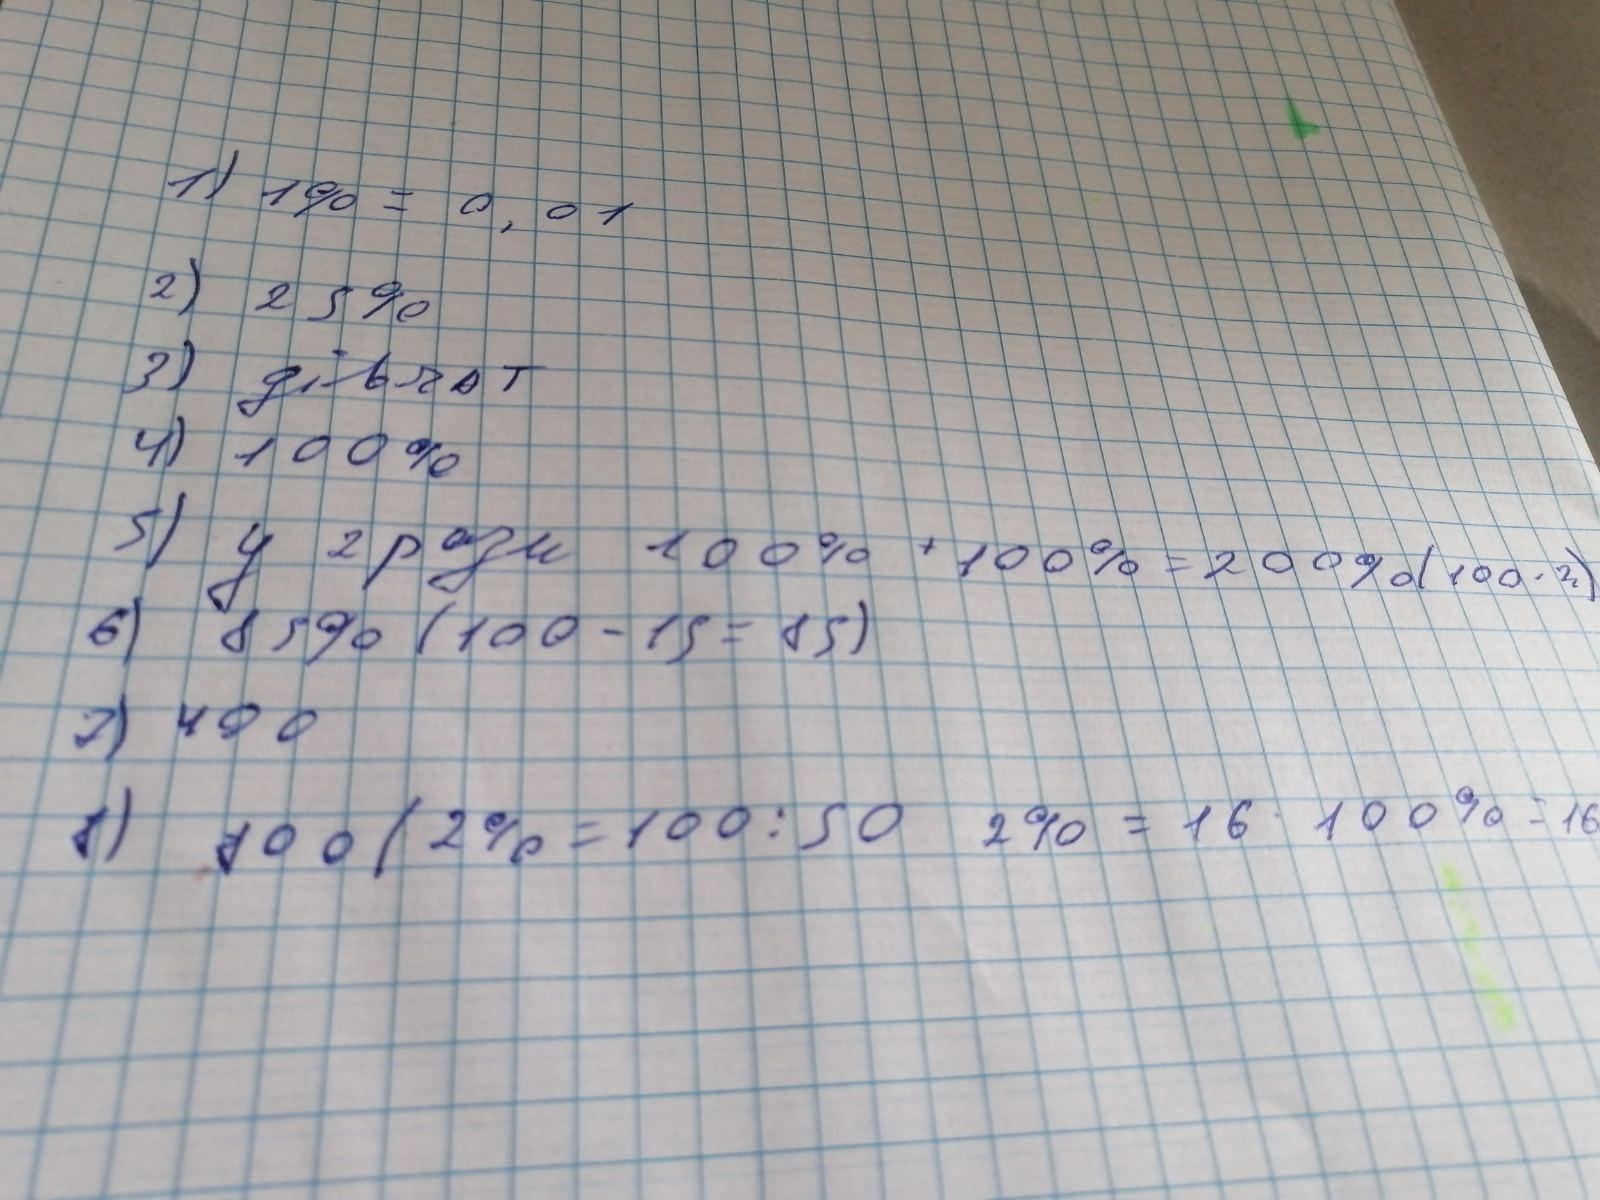 1) 1% = 0,01
2) 25%
3) дівчат
4) 100%
5) у 2 рази 100% + 100% = 200% (100·2)
6) 85% (100 - 15 = 85)
7) 400
8) 800 (2% = 100:50 2% = 16 100% = 16